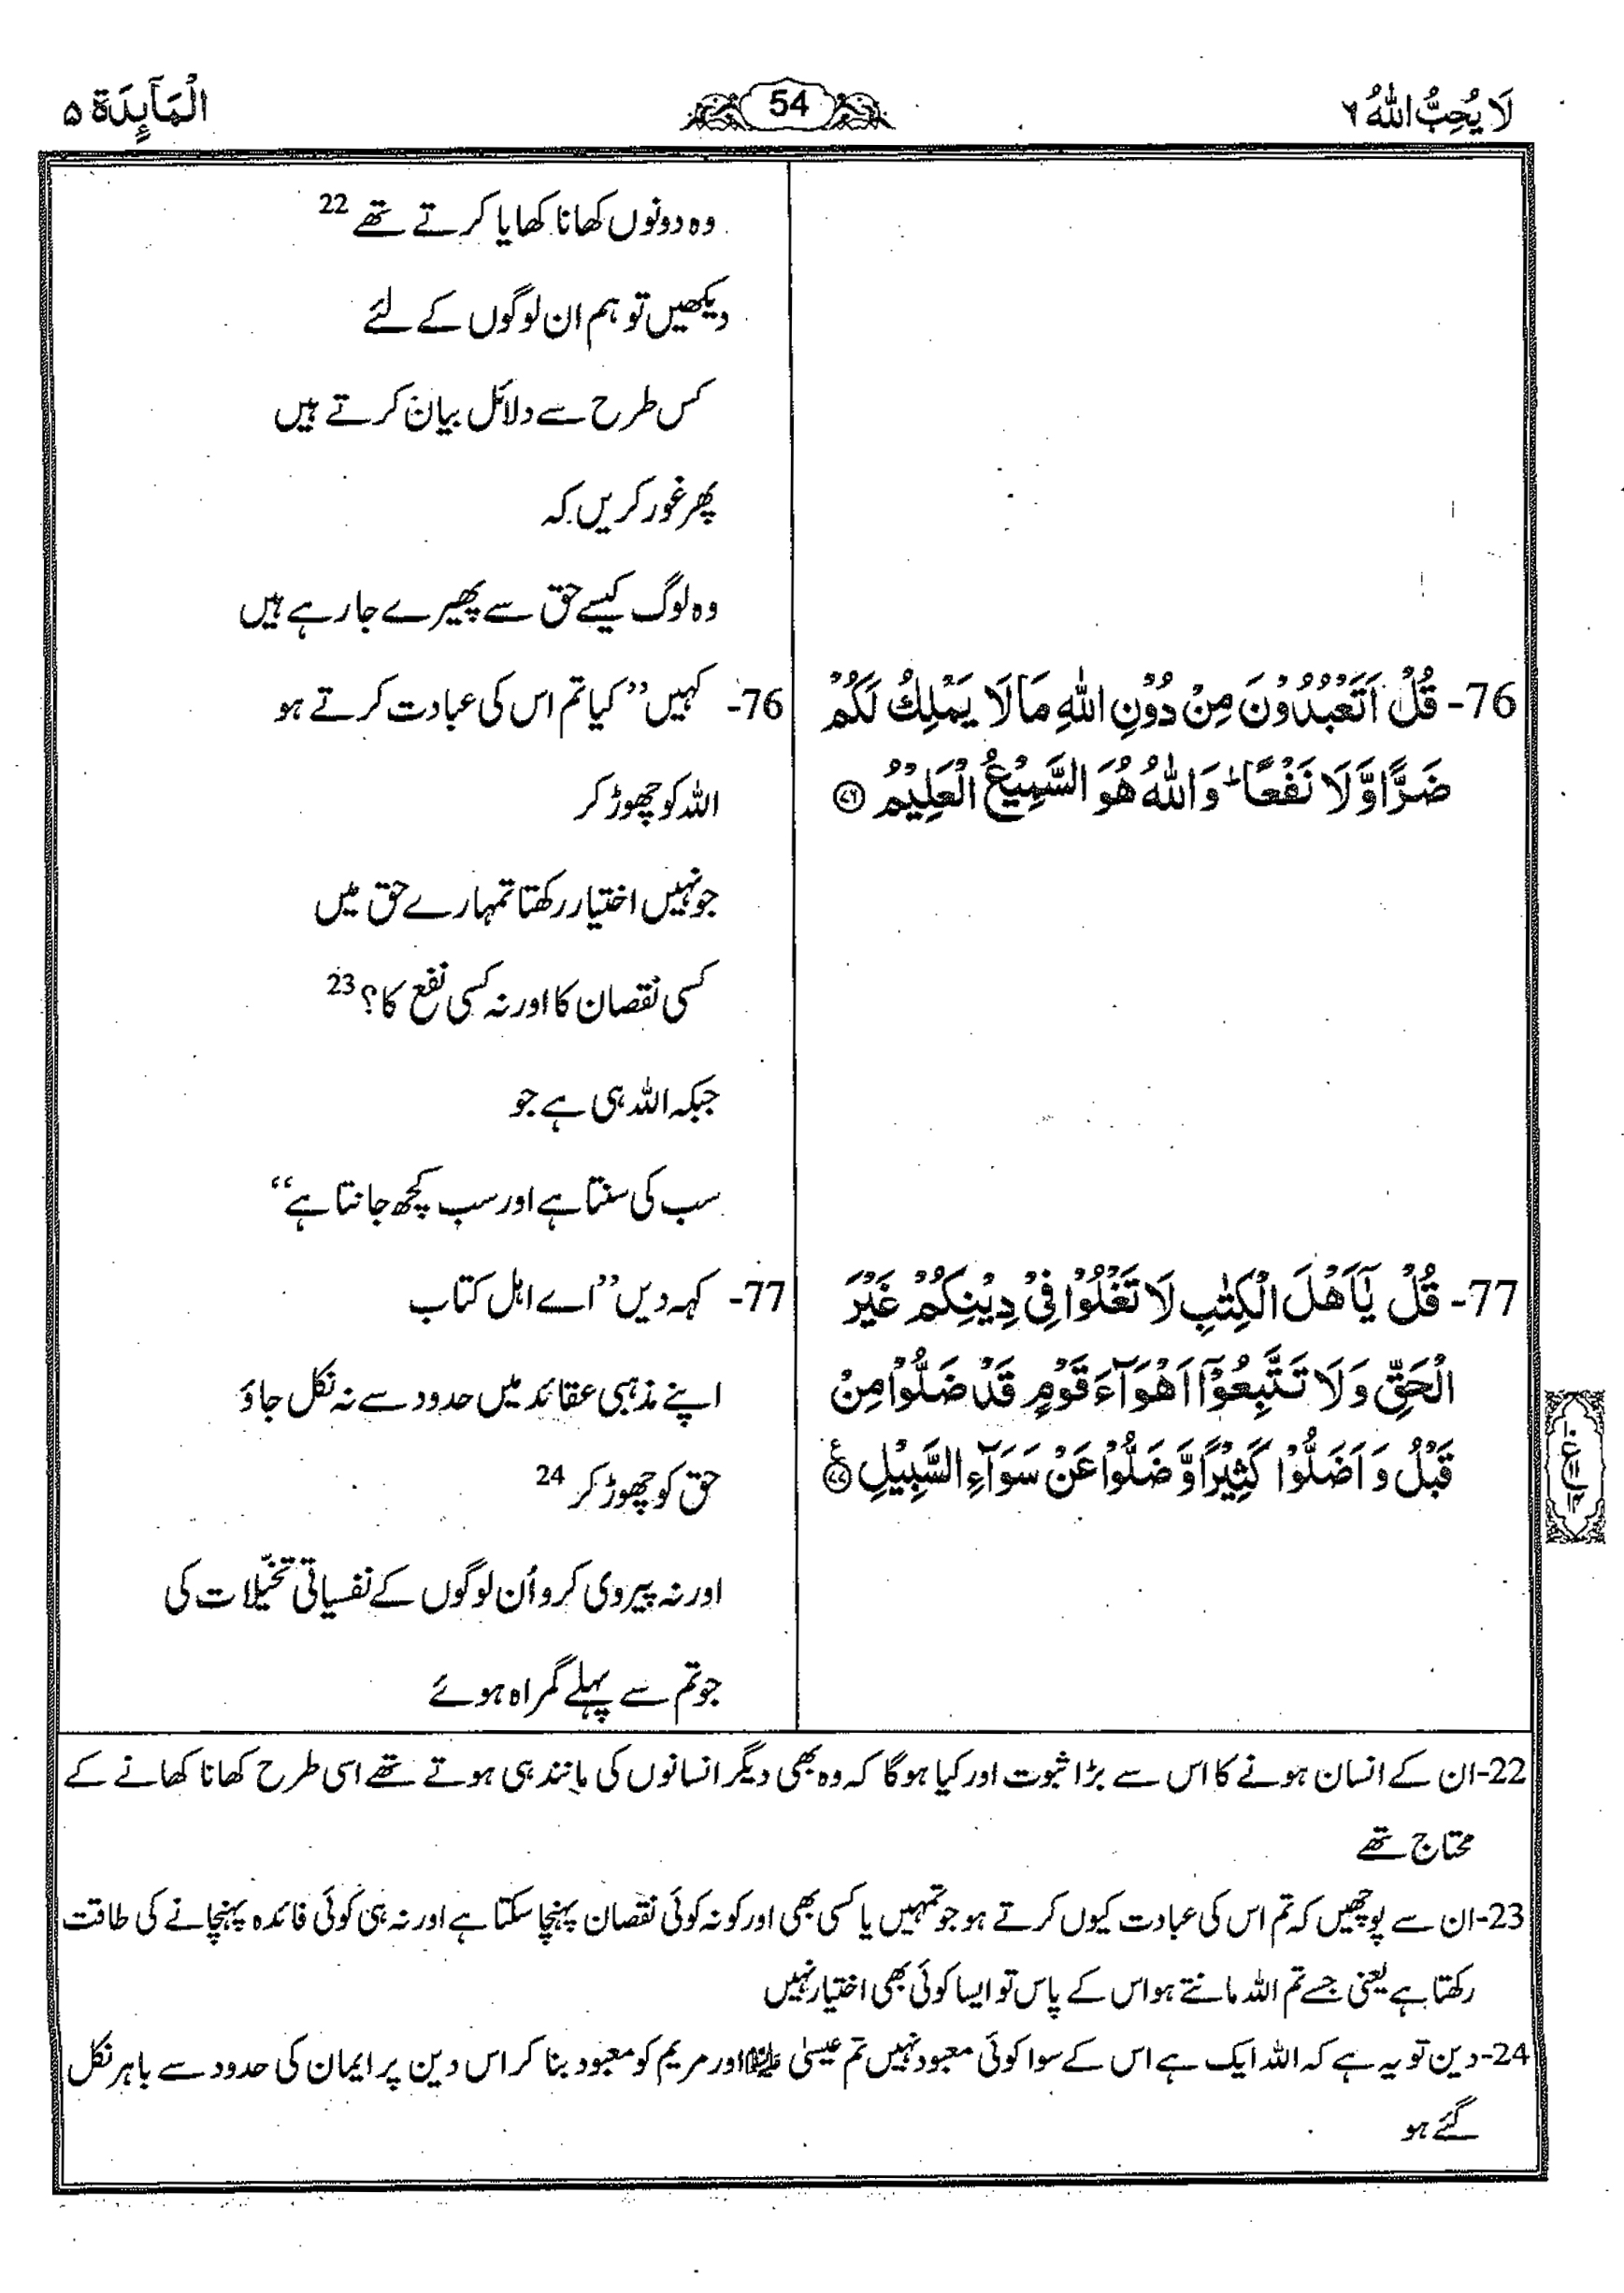 لَا يُحِبُّ اللّٰهُ ٦
54
الْمَآئِدَة ۵
وہ دونوں کھانا کھایا کرتے تھے 22
دیکھیں تو ہم ان لوگوں کے لئے
کس طرح سے دلائل بیان کرتے ہیں
پھر غور کریں کہ
وہ لوگ کیسے حق سے پھیرے جارہے ہیں
76- قُلْ اَتَعْبُدُوْنَ مِنْ دُوْنِ اللّٰهِ مَا لَا يَمْلِكُ لَكُمْ
ضَرًّا وَّلَا نَفْعًا ؕ وَاللّٰهُ هُوَ السَّمِيْعُ الْعَلِيْمُ ﴿۷۶﴾
76- کہیں ’’کیا تم اس کی عبادت کرتے ہو
اللہ کو چھوڑ کر
جو نہیں اختیار رکھتا تمہارے حق میں
کسی نقصان کا اور نہ کسی نفع کا؟ 23
جبکہ اللہ ہی ہے جو
سب کی سنتا ہے اور سب کچھ جانتا ہے‘‘
77- قُلْ يٰٓاَهْلَ الْكِتٰبِ لَا تَغْلُوْا فِيْ دِيْنِكُمْ غَيْرَ
الْحَقِّ وَلَا تَتَّبِعُوْٓا اَهْوَآءَ قَوْمٍ قَدْ ضَلُّوْا مِنْ
قَبْلُ وَاَضَلُّوْا كَثِيْرًا وَّضَلُّوْا عَنْ سَوَآءِ السَّبِيْلِ ﴿۷۷﴾ ع
77- کہہ دیں ’’اے اہل کتاب
اپنے مذہبی عقائد میں حدود سے نہ نکل جاؤ
حق کو چھوڑ کر 24
اور نہ پیروی کرو اُن لوگوں کے نفسیاتی تخیّلات کی
جو تم سے پہلے گمراہ ہوئے
22- ان کے انسان ہونے کا اس سے بڑا ثبوت اور کیا ہوگا کہ وہ بھی دیگر انسانوں کی مانند ہی ہوتے تھے اسی طرح کھانا کھانے کے
محتاج تھے
23- ان سے پوچھیں کہ تم اس کی عبادت کیوں کرتے ہو جو تمہیں یا کسی بھی اور کو نہ کوئی نقصان پہنچا سکتا ہے اور نہ ہی کوئی فائدہ پہنچانے کی طاقت
رکھتا ہے یعنی جسے تم اللہ مانتے ہو اس کے پاس تو ایسا کوئی بھی اختیار نہیں
24- دین تو یہ ہے کہ اللہ ایک ہے اس کے سوا کوئی معبود نہیں تم عیسیٰ علیہ السلام اور مریم کو معبود بنا کر اس دین پر ایمان کی حدود سے باہر نکل
گئے ہو